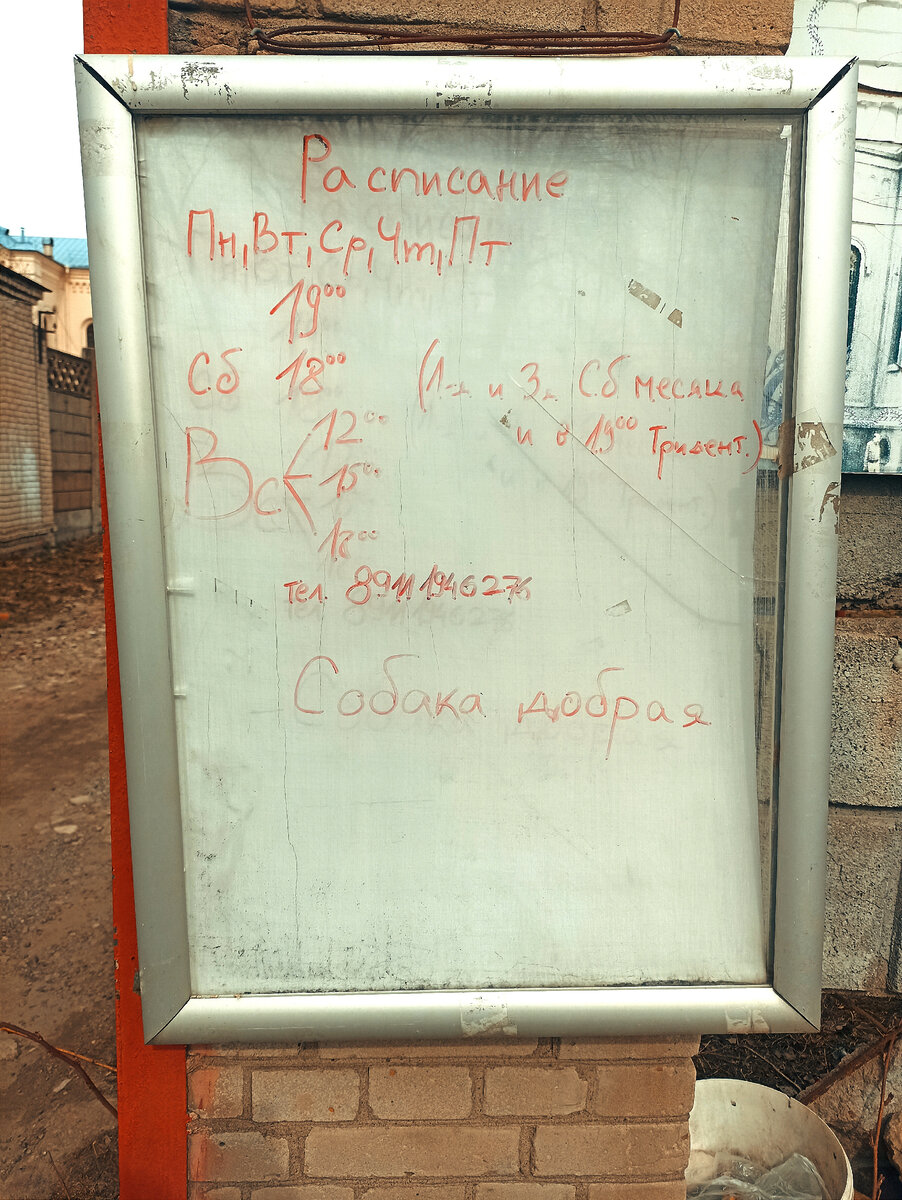 Расписание
Пн, Вт, Ср, Чт, Пт
19⁰⁰
Сб 18⁰⁰ (1-я и 3-я Сб месяца
и в 19⁰⁰ Тридент.)
Вс 12⁰⁰
15⁰⁰
18⁰⁰
тел. 89111946276
Собака добрая